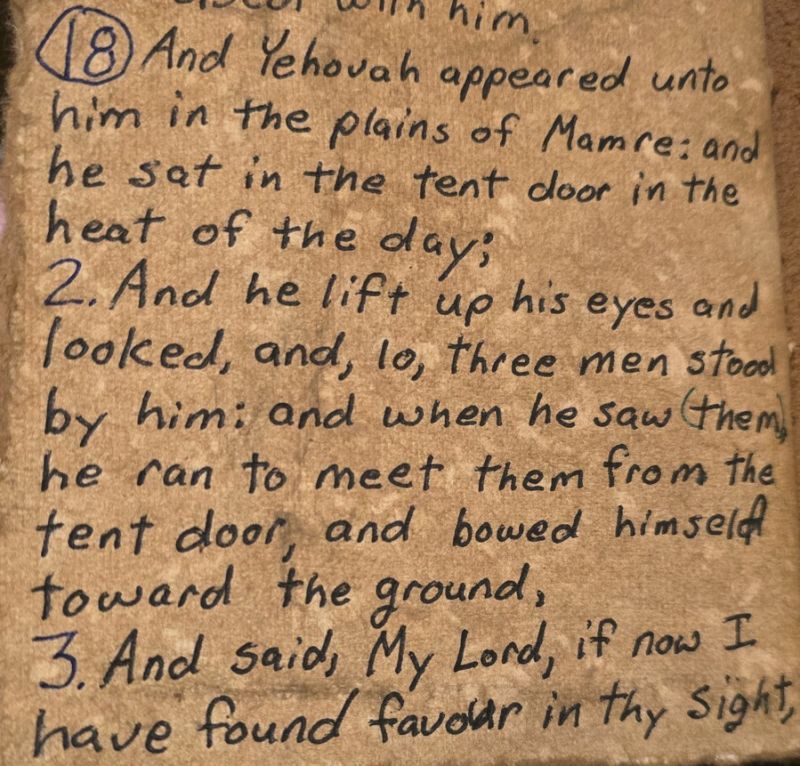 with him.
18 And Yehovah appeared unto
him in the plains of Mamre: and
he sat in the tent door in the
heat of the day;
2. And he lift up his eyes and
looked, and, lo, three men stood
by him: and when he saw (them,)
he ran to meet them from the
tent door, and bowed himself
toward the ground,
3. And said, My Lord, if now I
have found favour in thy sight,